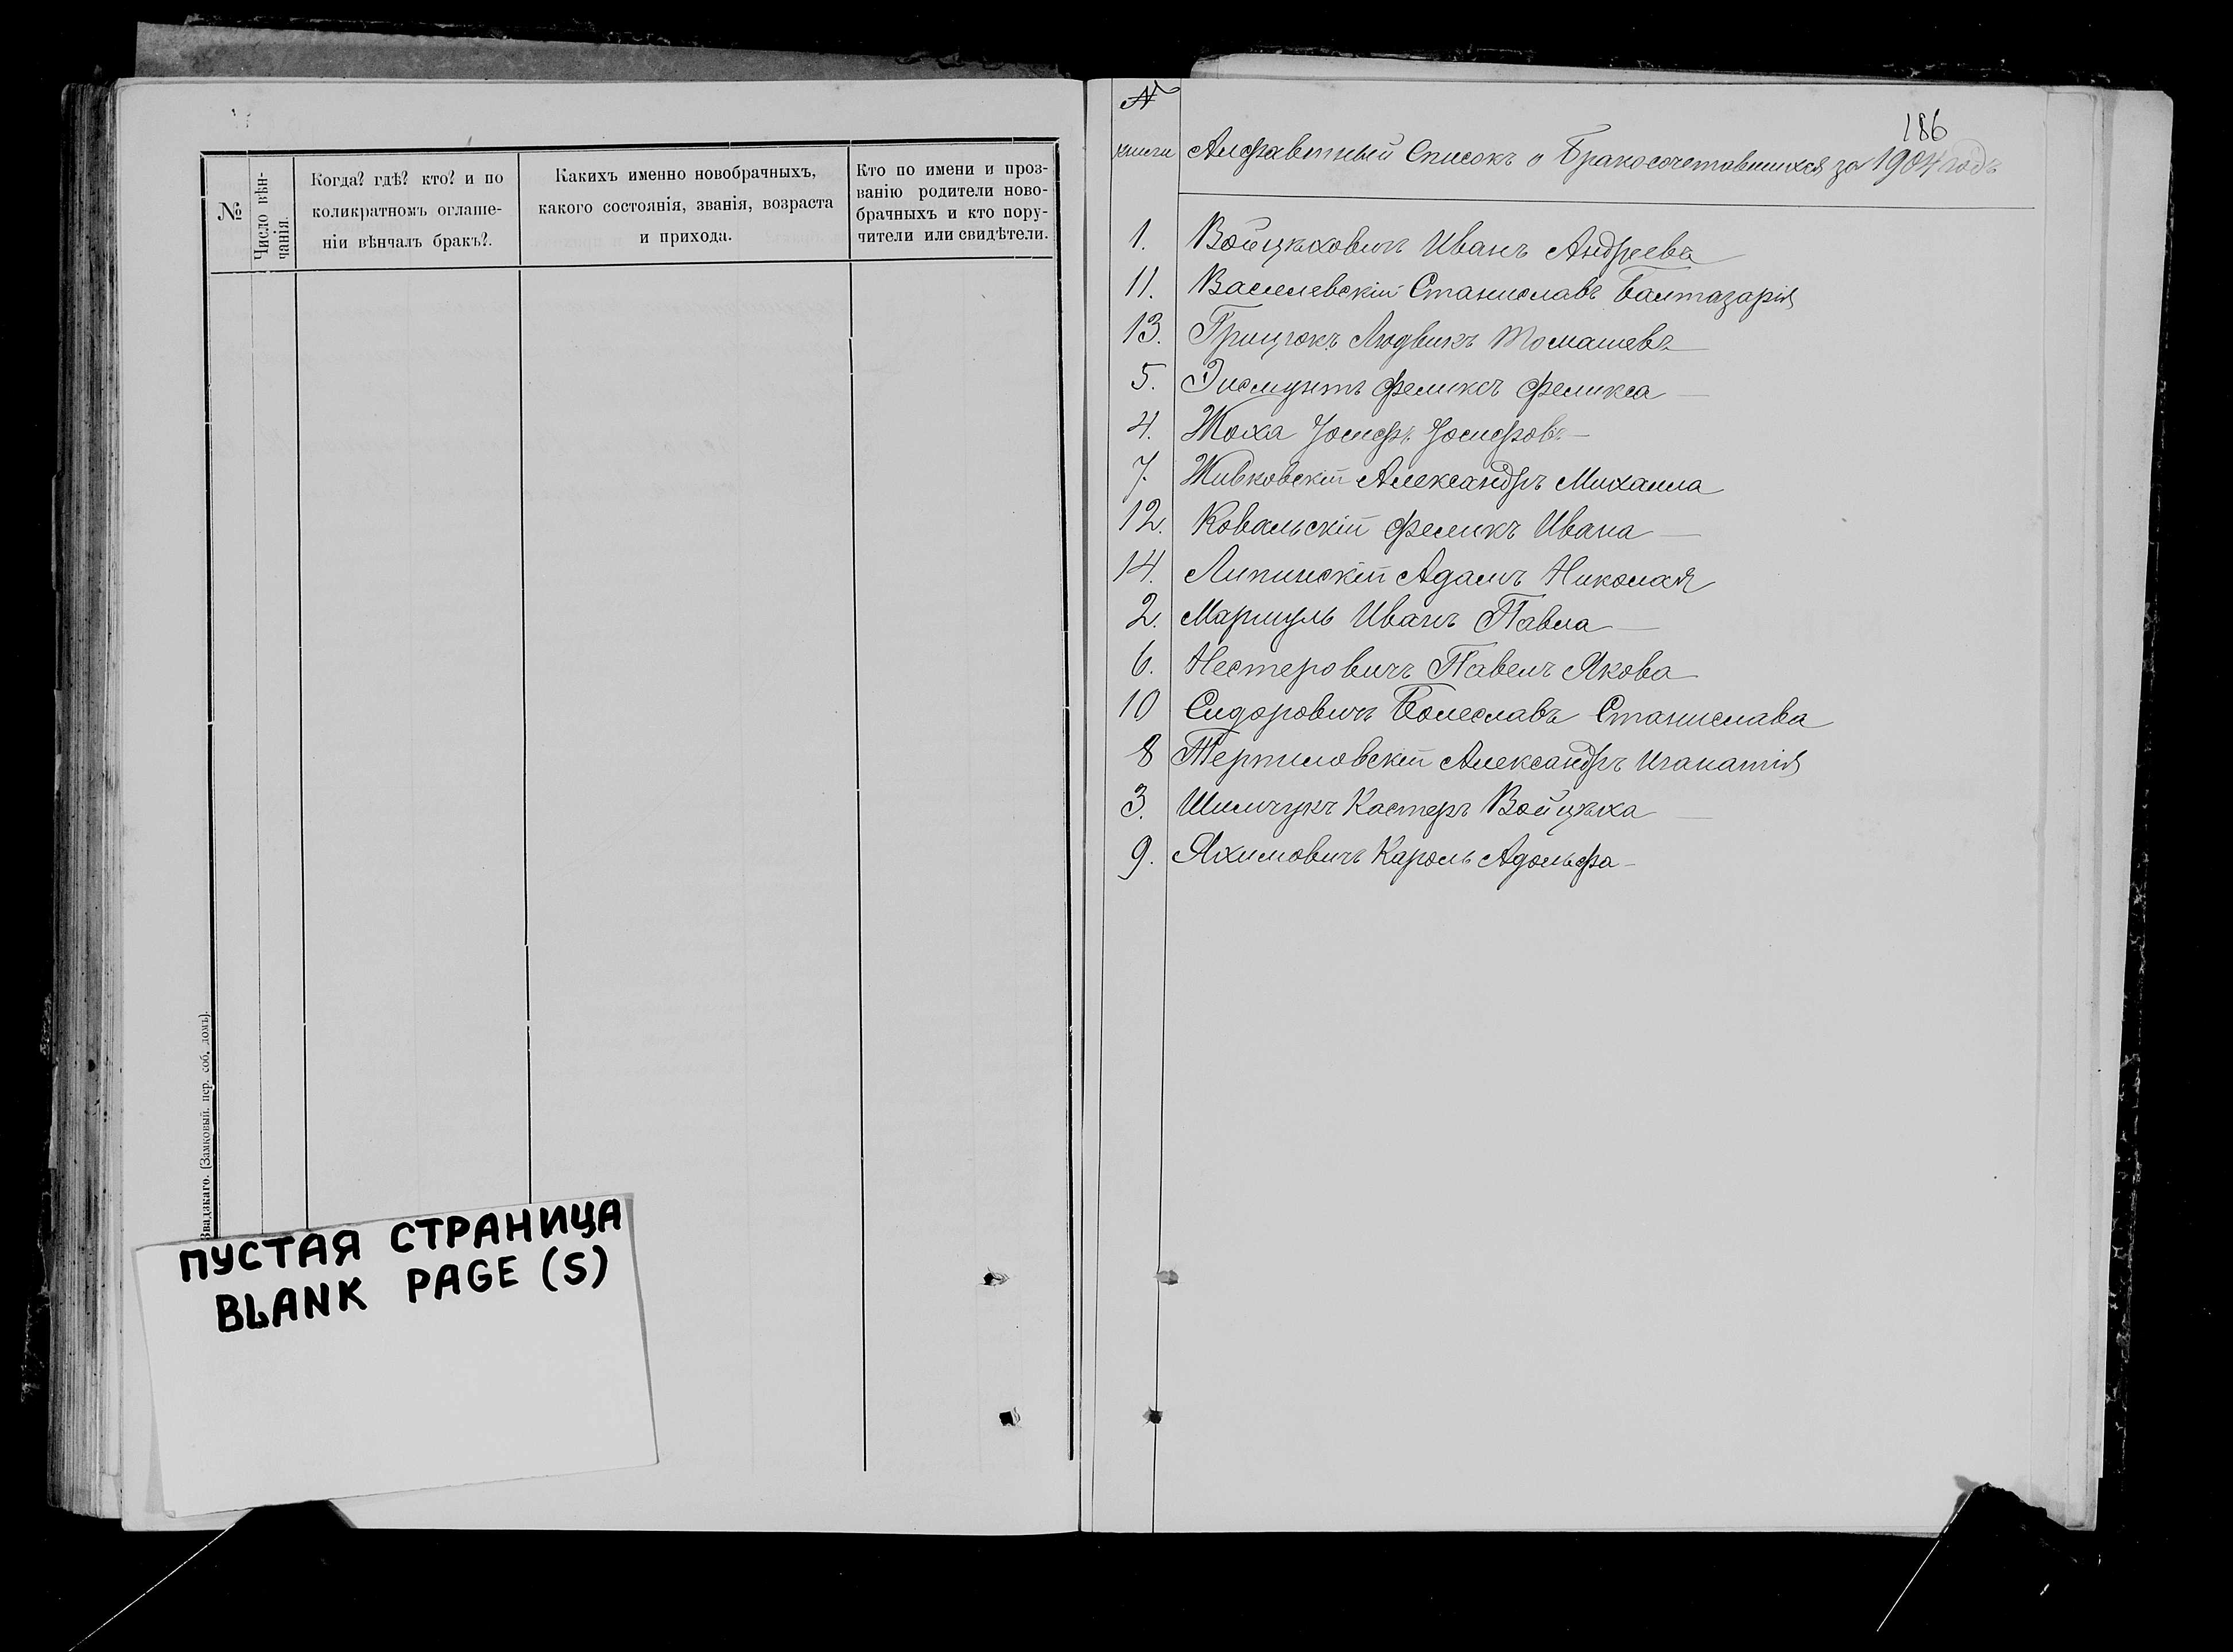 №
Число вѣн-
чанія.
Когда? гдѣ? кто? и по
коликратномъ оглаше-
ніи вѣнчалъ бракъ?.
Какихъ именно новобрачныхъ,
какого состоянія, званія, возраста
и прихода.
Кто по имени и проз-
ванію родители ново-
брачныхъ и кто пору-
чители или свидѣтели.
Завадзкаго. (Замковый. пер. соб. домъ).
ПУСТАЯ СТРАНИЦА
BLANK PAGE (S)
№
книги
186
Алфавитный Списокъ о Бракосочетавшихся за 1904 годъ
1. Войцѣховичъ Иванъ Андреевъ
11. Василевскій Станиславъ Балтазарія
13. Грицюкъ Людвикъ Томашевъ
5. Феликсъ Феликса
4. Жоха Іосифъ Іосифовъ
7. Живковскій Александръ Михаила
12. Ковальскій Феликъ Ивана
14. Липинскій Адамъ Николая
2. Марцуль Иванъ Павла
6. Нестеровичъ Павелъ Якова
10 Сидоровичъ Болеславъ Станислава
8 Терпиловскій Александръ Иганатія
3. Шимчукъ Кастеръ Войцѣха
9. Яхимовичъ Кароль Адольфа